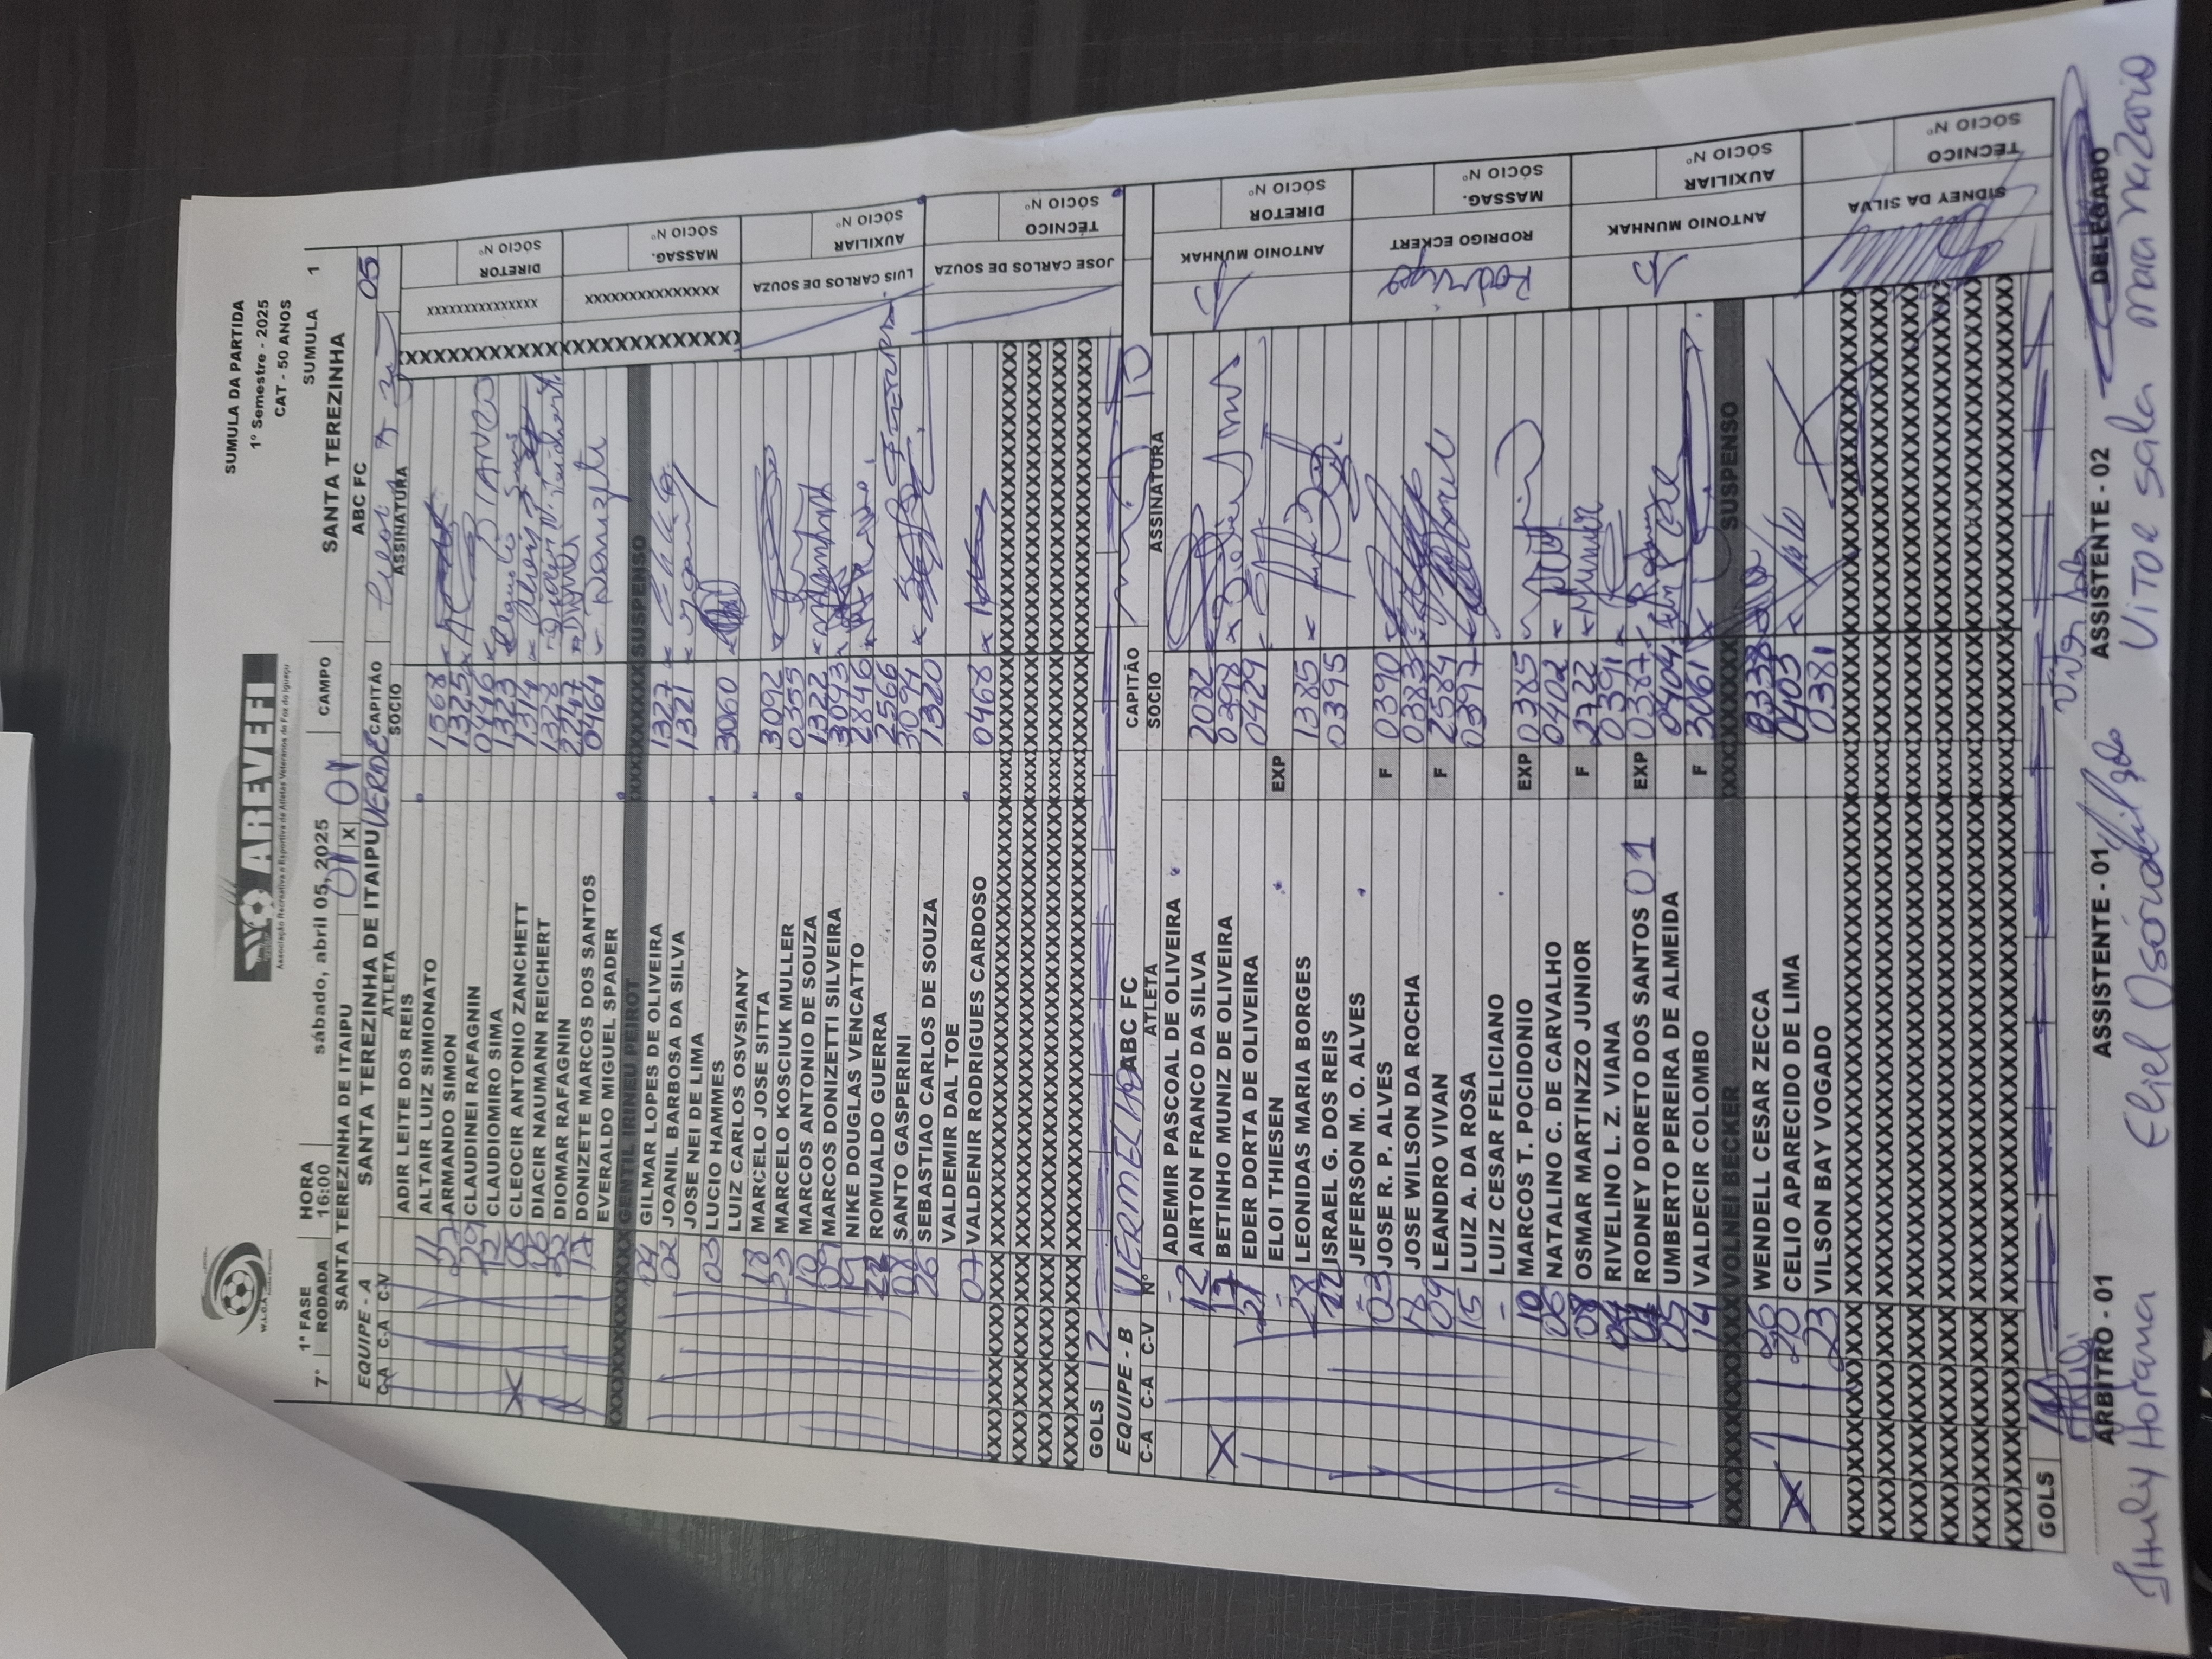 W.L.G.A.
AREVEFI
Associação Recreativa e Esportiva de Atletas Veteranos de Foz do Iguaçu
SUMULA DA PARTIDA
1º Semestre - 2025
CAT - 50 ANOS
7ª 1ª FASE RODADA HORA 16:00 sábado, abril 05, 2025 CAMPO SUMULA 1
SANTA TEREZINHA DE ITAIPU 01 X 01 SANTA TEREZINHA
EQUIPE - A SANTA TEREZINHA DE ITAIPU VERDE CAPITÃO ABC FC 05
C-A C-A C-V ATLETA SOCIO ASSINATURA
ADIR LEITE DOS REIS
11 ALTAIR LUIZ SIMIONATO 1568
ARMANDO SIMON 1325
CLAUDINEI RAFAGNIN 0446
12 CLAUDIOMIRO SIMA 1323
05 CLEOCIR ANTONIO ZANCHETT 1314
06 DIACIR NAUMANN REICHERT 1328
22 DIOMAR RAFAGNIN
17 DONIZETE MARCOS DOS SANTOS 0464
EVERALDO MIGUEL SPADER
GENTIL IRINEU PEIROT SUSPENSO
04 GILMAR LOPES DE OLIVEIRA 1327
02 JOANIL BARBOSA DA SILVA 1321
JOSE NEI DE LIMA
03 LUCIO HAMMES 3060
LUIZ CARLOS OSVSIANY
18 MARCELO JOSE SITTA 3092
23 MARCELO KOSCIUK MULLER 0355
10 MARCOS ANTONIO DE SOUZA 1322
09 MARCOS DONIZETTI SILVEIRA 3043
19 NIKE DOUGLAS VENCATTO 2846
22 ROMUALDO GUERRA 2566
08 SANTO GASPERINI 3094
26 SEBASTIAO CARLOS DE SOUZA 1320
VALDEMIR DAL TOE
07 VALDENIR RODRIGUES CARDOSO 0468
GOLS 12
DIRETOR SÓCIO Nº
MASSAG. SÓCIO Nº
LUIS CARLOS DE SOUZA AUXILIAR SÓCIO Nº
JOSE CARLOS DE SOUZA TÉCNICO SÓCIO Nº
EQUIPE - B VERMELHO ABC FC CAPITÃO 10
C-A C-A C-V Nº ATLETA SOCIO ASSINATURA
ADEMIR PASCOAL DE OLIVEIRA
12 AIRTON FRANCO DA SILVA 2082
17 BETINHO MUNIZ DE OLIVEIRA 0398
21 EDER DORTA DE OLIVEIRA 0429
ELOI THIESEN EXP
28 LEONIDAS MARIA BORGES 1385
22 ISRAEL G. DOS REIS 0395
JEFERSON M. O. ALVES
03 JOSE R. P. ALVES F 0390
18 JOSE WILSON DA ROCHA 0383
09 LEANDRO VIVAN F 2584
15 LUIZ A. DA ROSA 0397
LUIZ CESAR FELICIANO
10 MARCOS T. POCIDONIO EXP 0385
06 NATALINO C. DE CARVALHO 0402
08 OSMAR MARTINZZO JUNIOR F 2722
RIVELINO L. Z. VIANA 0391
RODNEY DORETO DOS SANTOS 01 EXP 0387
05 UMBERTO PEREIRA DE ALMEIDA 0404
14 VALDECIR COLOMBO F 3061
VOLNEI BECKER SUSPENSO
26 WENDELL CESAR ZECCA 0338
20 CELIO APARECIDO DE LIMA 0403
23 VILSON BAY VOGADO 0381
GOLS
ANTONIO MUNHAK DIRETOR SÓCIO Nº
Rodrigo RODRIGO ECKERT MASSAG. SÓCIO Nº
ANTONIO MUNHAK AUXILIAR SÓCIO Nº
SIDNEY DA SILVA TÉCNICO SÓCIO Nº
ARBITRO - 01 ASSISTENTE - 01 ASSISTENTE - 02 DELEGADO
Eliel Osório Vitor sala